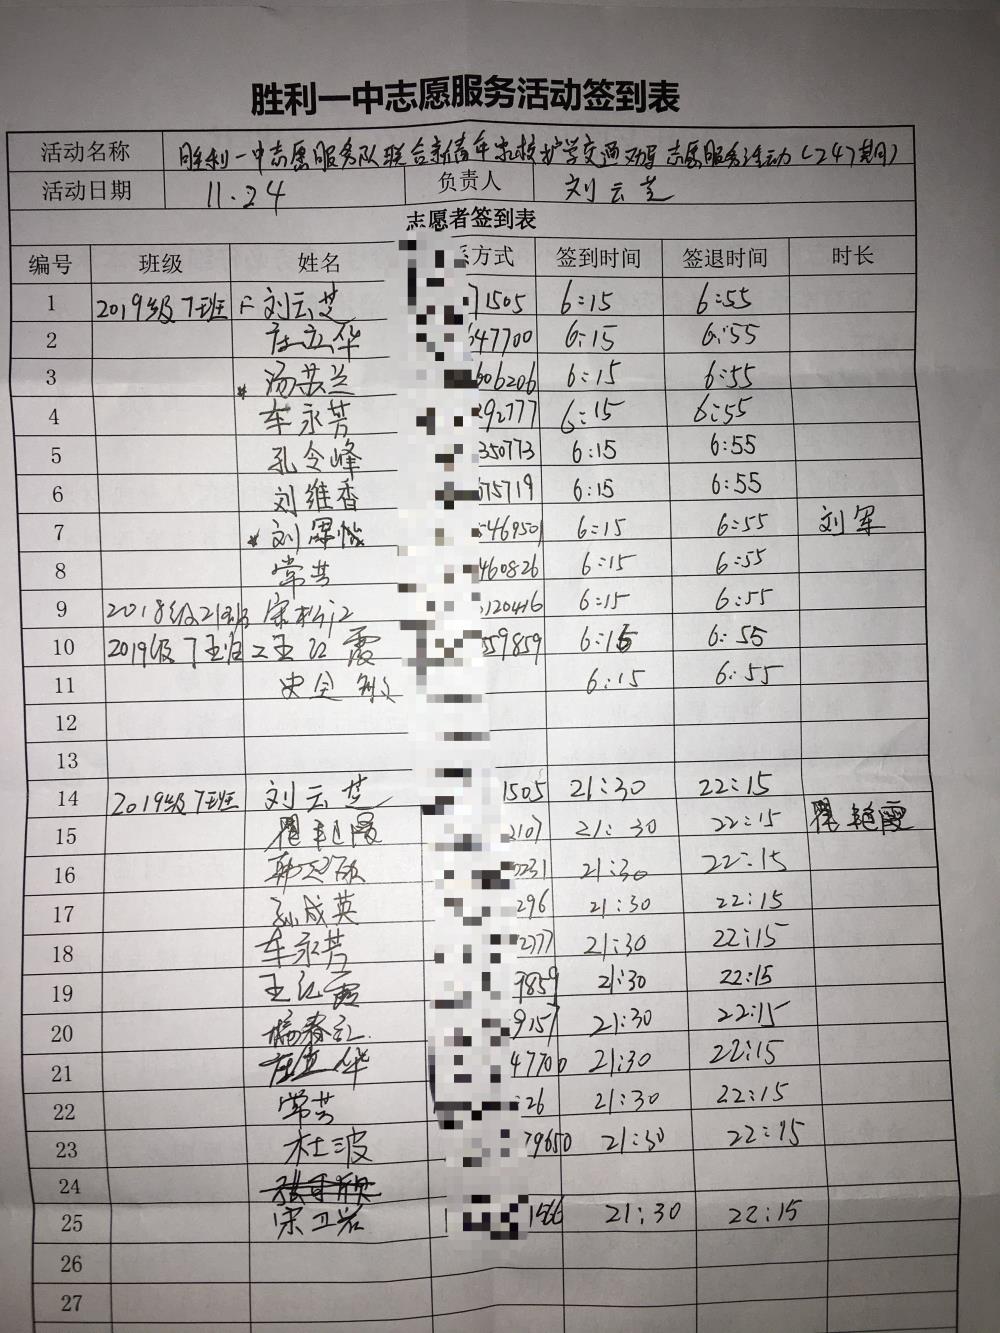 胜利一中志愿服务活动签到表
活动名称 胜利一中志愿服务队联合 护学交通劝导志愿服务活动(247期)
活动日期 11.24 负责人 刘云芝
志愿者签到表
编号 班级 姓名 系方式 签到时间 签退时间 时长
1 2019级7班 刘云芝 71505 6:15 6:55
2 庄立华 647700 6:15 6:55
3 606206 6:15 6:55
4 车永芳 292777 6:15 6:55
5 孔令峰 350773 6:15 6:55
6 刘维香 575719 6:15 6:55
7 刘 546950 6:15 6:55 刘军
8 常芸 460826 6:15 6:55
9 2018级21班 宋 120416 6:15 6:55
10 2019级7班 王红霞 559859 6:15 6:55
11 史全 6:15 6:55
12
13
14 2019级7班 刘云芝 1505 21:30 22:15
15 翟艳霞 2107 21:30 22:15 翟艳霞
16 0231 21:30 22:15
17 孙成英 296 21:30 22:15
18 车永芳 2777 21:30 22:15
19 王红霞 9859 21:30 22:15
20 杨春红 9157 21:30 22:15
21 庄立华 47700 21:30 22:15
22 常芸 26 21:30 22:15
23 杜波 79650 21:30 22:15
24
25 宋卫岩 1566 21:30 22:15
26
27